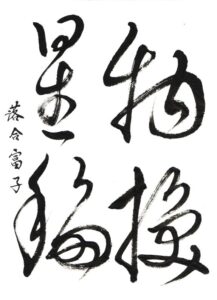 物換
星移
落合富子